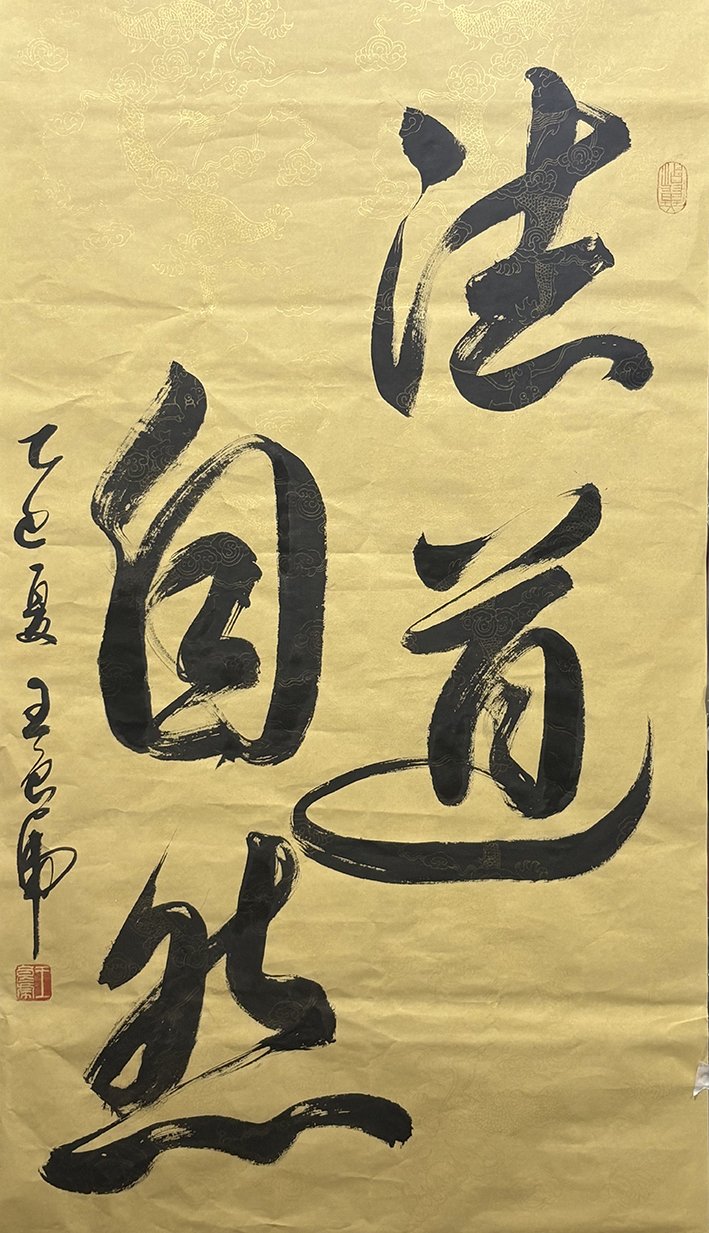 法道
自然
乙巳夏 王